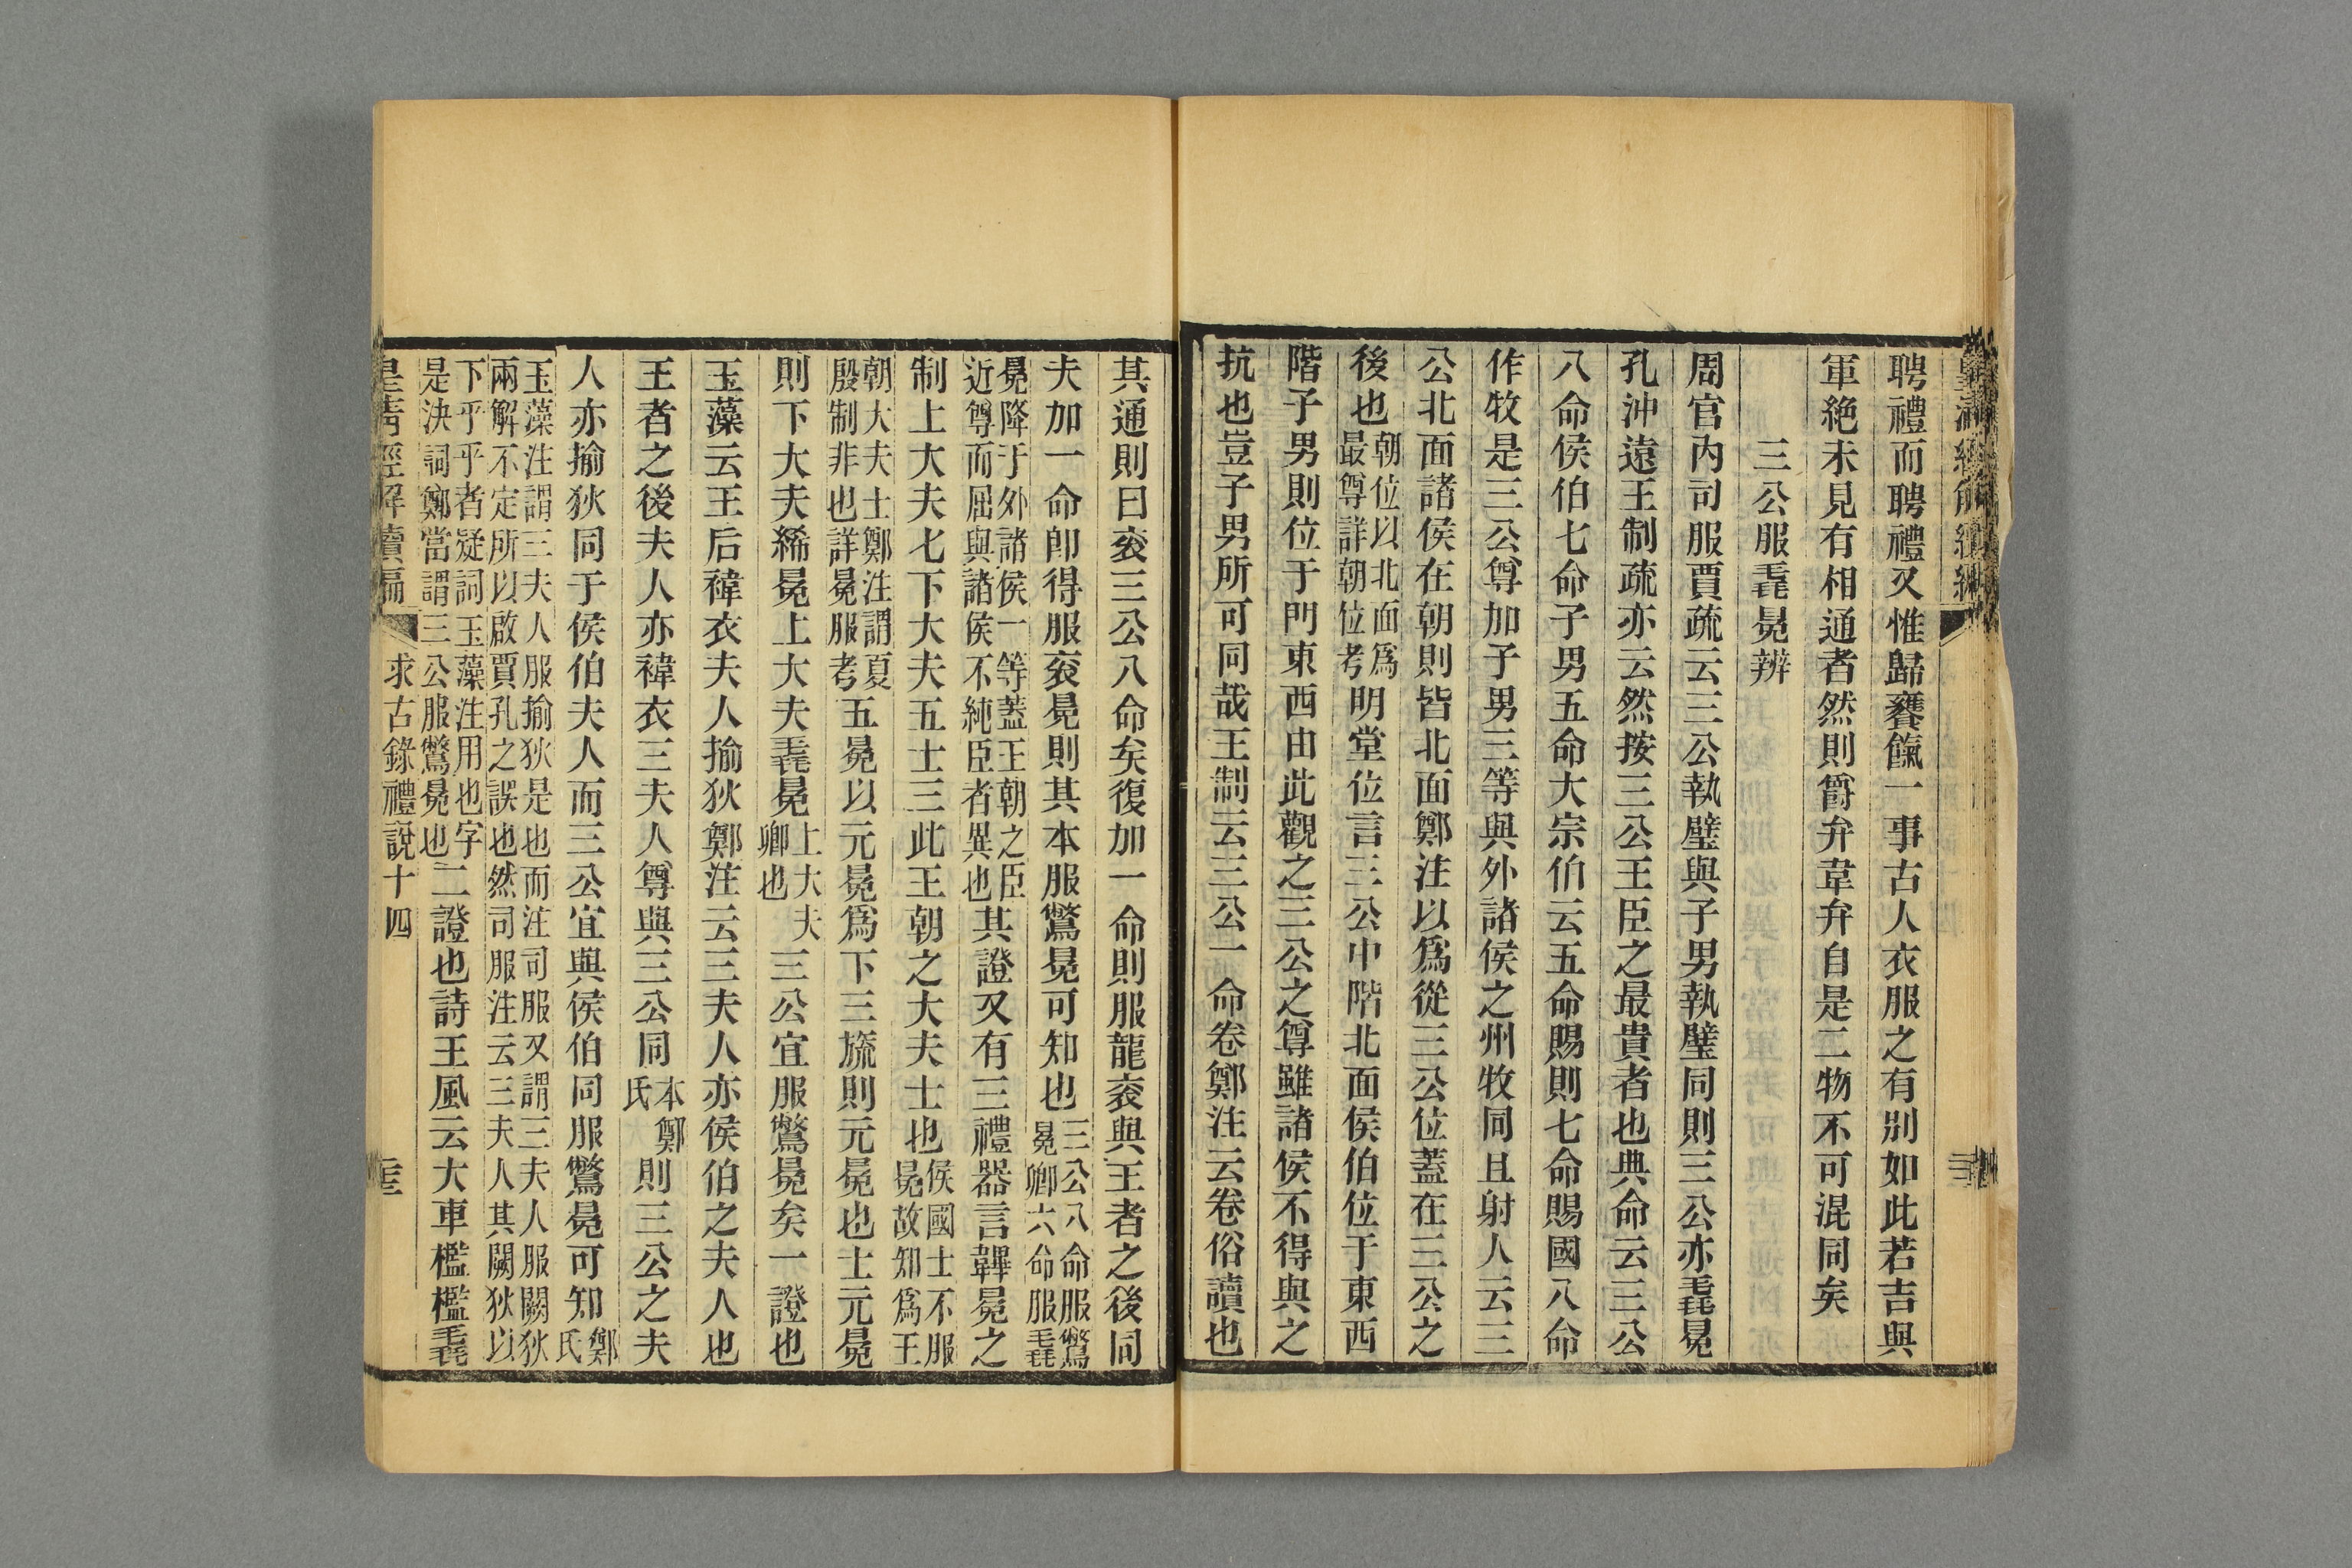 皇清經解續編
聘禮而聘禮又惟歸饔餼一事古人衣服之有別如此若吉與
軍絶未見有相通者然則爵弁韋弁自是二物不可混同矣
三公服毳冕辨
周官內司服賈疏云三公執璧與子男執璧同則三公亦毳冕
孔沖遠王制疏亦云然按三公王臣之最貴者也典命云三公
八命侯伯七命子男五命大宗伯云五命賜則七命賜國八命
作牧是三公尊加子男三等與外諸侯之州牧同且射人云三
公北面諸侯在朝則皆北面鄭注以爲從三公位蓋在三公之
後也朝位以北面爲最尊詳朝位考明堂位言三公中階北面侯伯位于東西
階子男則位于門東西由此觀之三公之尊雖諸侯不得與之
抗也豈子男所可同哉王制云三公一命卷鄭注云卷俗讀也
其通則曰衮三公八命矣復加一命則服龍衮與王者之後同
夫加一命卽得服衮冕則其本服鷩冕可知也三公八命服鷩冕卿六命服毳
冕降于外諸侯一等蓋王朝之臣近尊而屈與諸侯不純臣者異也其證又有三禮器言韠冕之
制上大夫七下大夫五士三此王朝之大夫士也侯國士不服冕故知爲王
朝大夫士鄭注謂夏殷制非也詳冕服考五冕以元冕爲下三旒則元冕也士元冕
則下大夫絺冕上大夫毳冕上大夫卿也三公宜服鷩冕矣一證也
玉藻云王后褘衣夫人揄狄鄭注云三夫人亦侯伯之夫人也
王者之後夫人亦褘衣三夫人尊與三公同本鄭氏則三公之夫
人亦揄狄同于侯伯夫人而三公宜與侯伯同服鷩冕可知鄭氏
玉藻注謂三夫人服揄狄是也而注司服又謂三夫人服闕狄兩解不定所以啟賈孔之誤也然司服注云三夫人其闕狄以
下乎乎者疑詞玉藻注用也字是決詞鄭當謂三公服鷩冕也二證也詩王風云大車檻檻毳
皇清經解續編 求古錄禮說十四